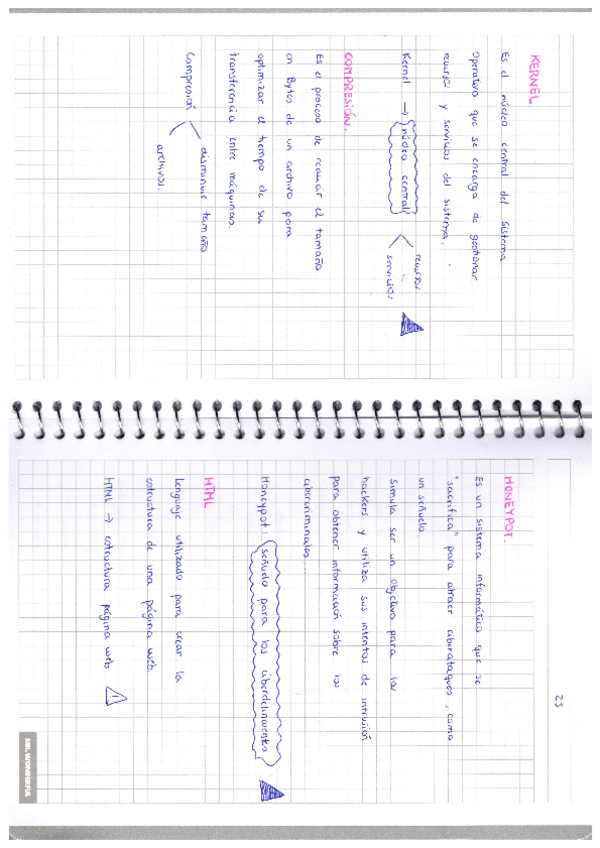 KERNEL
Es el núcleo central del sistema
Operativo que se encarga de gestionar
recursos y servicios del sistema.
Kernel → núcleo central < recursos
servicios
COMPRESIÓN.
Es el proceso de reducir el tamaño
en Bytes de un archivo para
optimizar el tiempo de su
transferencia entre máquinas.
Compresión < disminuir tamaño
archivos.
25
HONEYPOT.
Es un sistema informático que se
"sacrifica" para atraer ciberataques, como
un señuelo.
Simula ser un objetivo para los
hackers y utiliza sus intentos de intrusión
para obtener información sobre los
cibercriminales.
Honeypot: señuelo para los ciberdelincuentes
HTML
Lenguaje utilizado para crear la
estructura de una página web.
HTML → estructura página web. !
MR. WONDERFUL